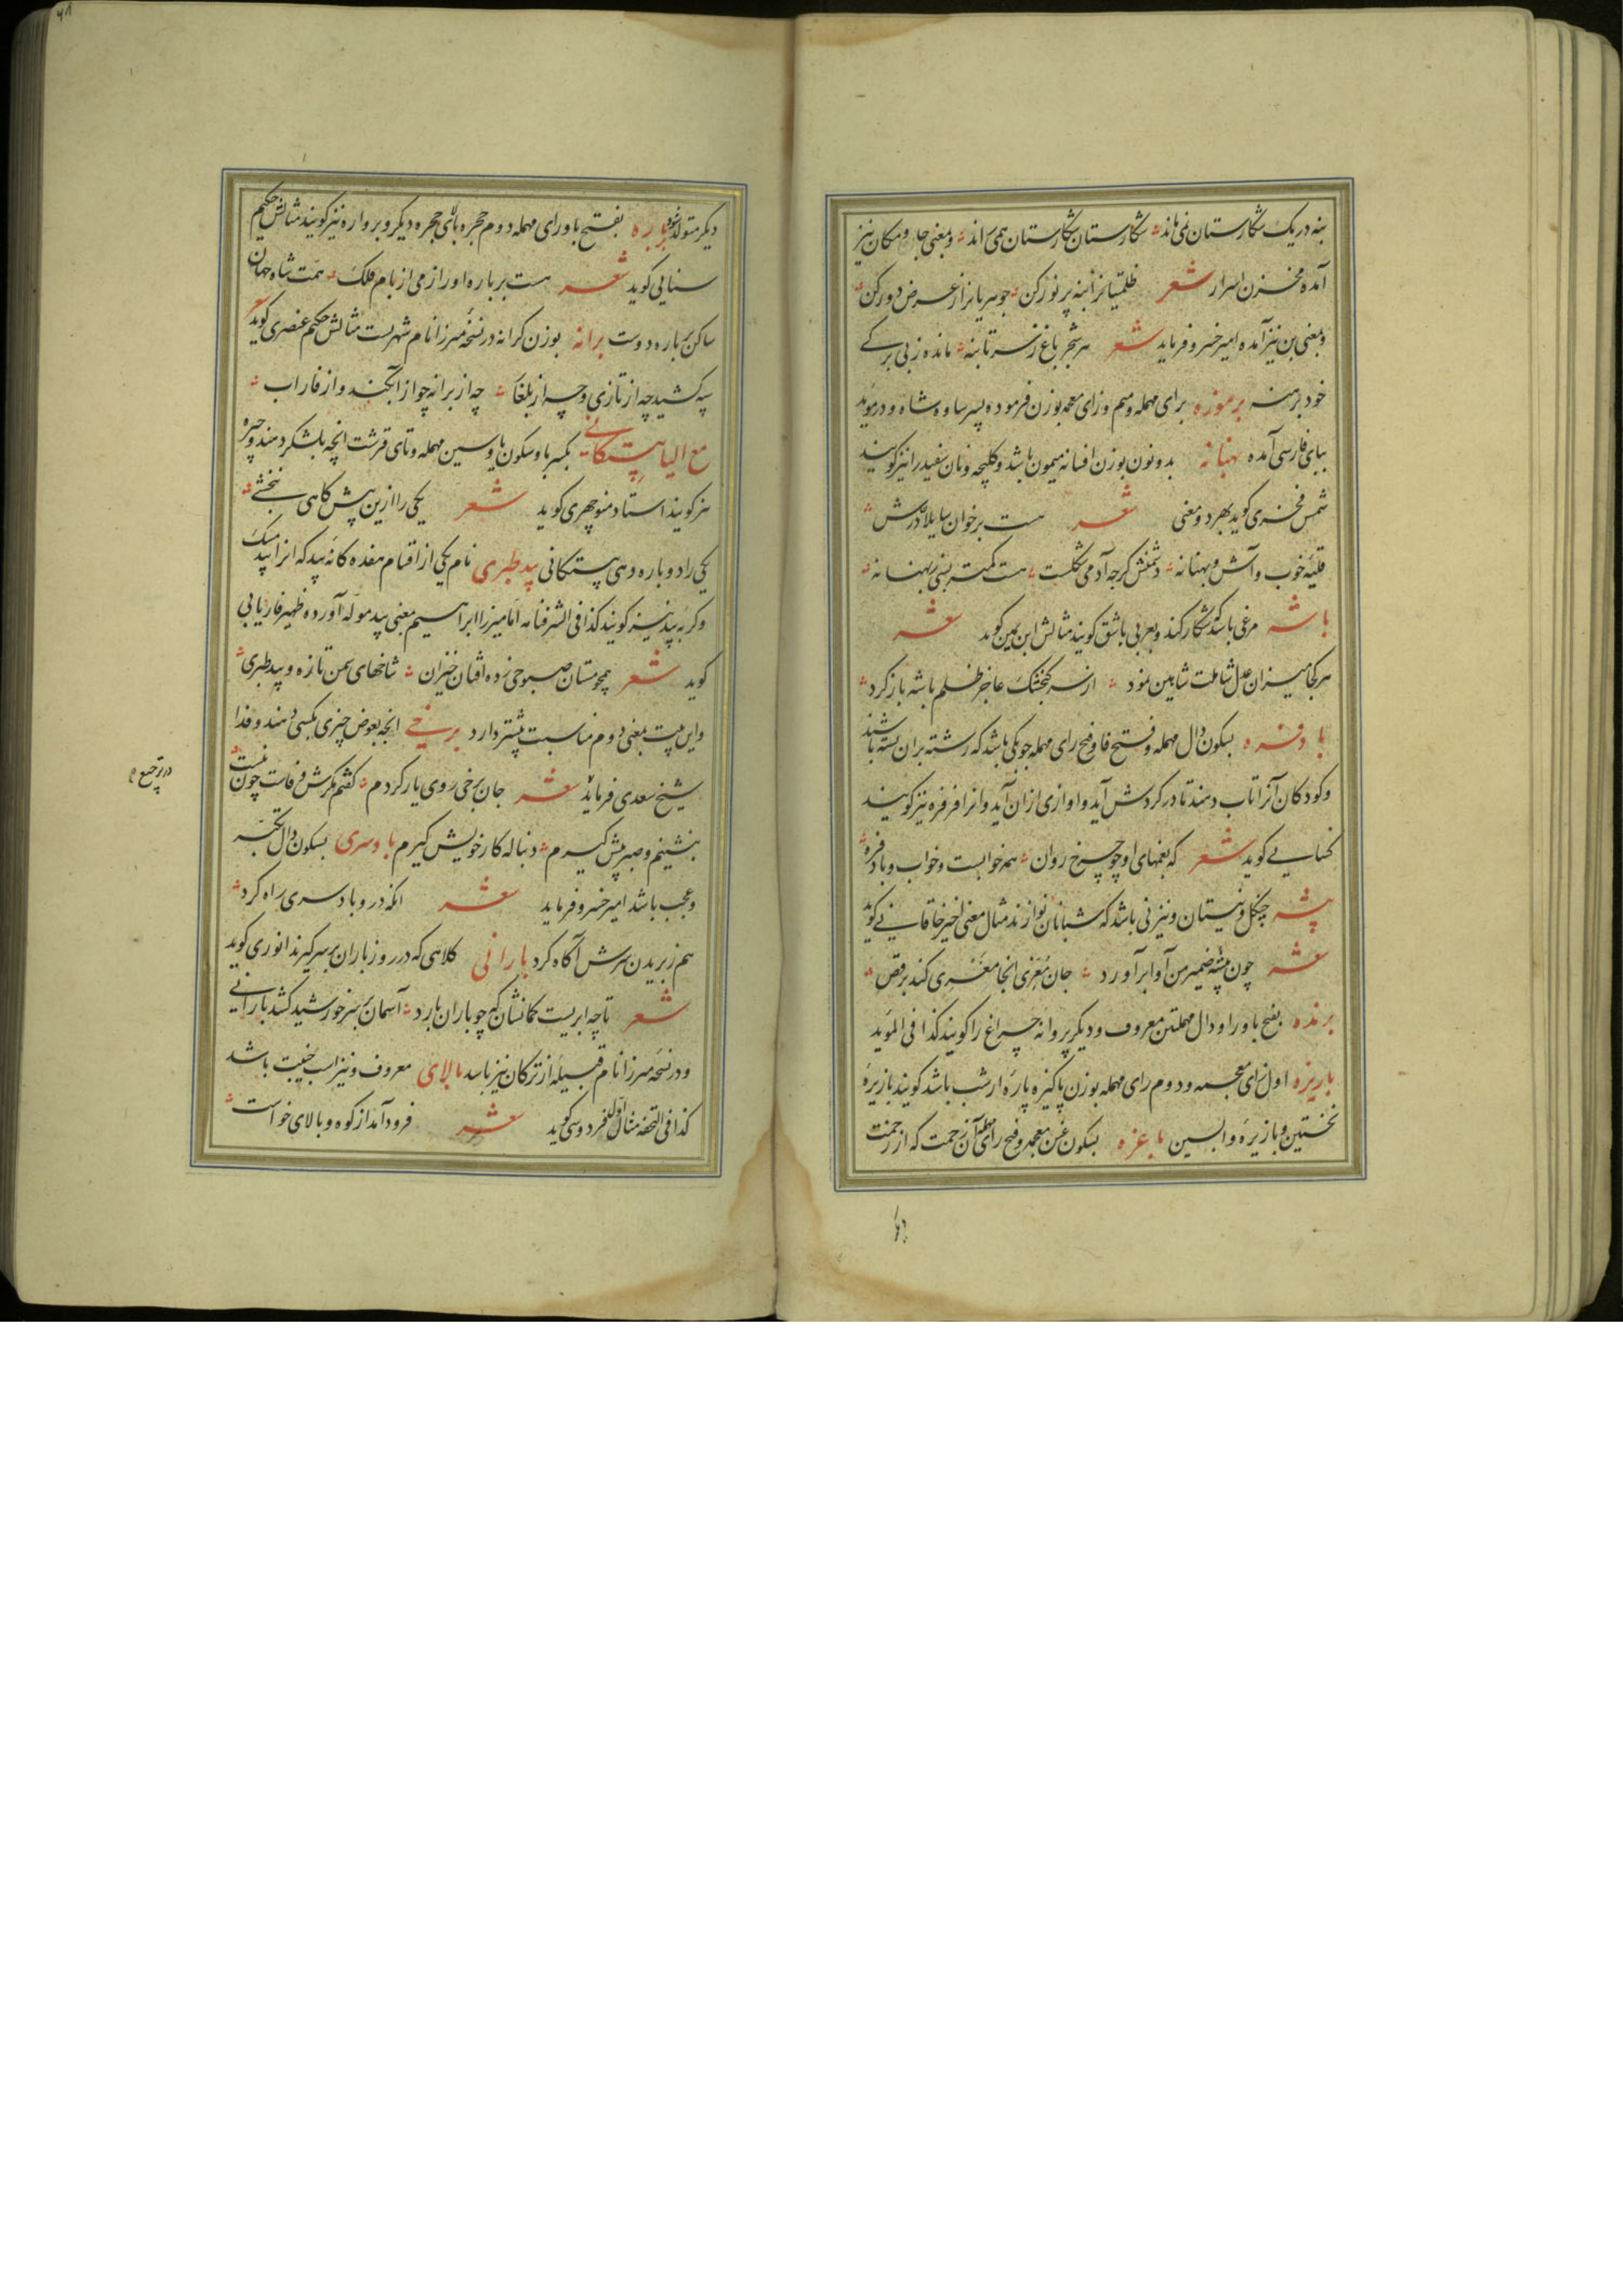 بنه در یک نگارستان نمی ماند نگارستان نگارستان همی راند و بمعنی جا و مکان نیز
آمده مخزن اسرار شعر ظلمتیانرا بنه پر نور کن جوهریانرا ز عرض دور کن
و بمعنی بن نیز آمده امیر خسرو فرماید شعر هر شجر باغ ز سر تا بنه مانده ز بی برگی
خود برهنه برموزه برای مهمله و میم و زای معجمه بوزن فرموده پسر ساوه شاه و در موید
ببای فارسی آمده بهنانه بدو نون بوزن افسانه میمون باشد و کلیچه و نان سفید را نیز گویند
شمس فخری گوید بهر دو معنی شعر هست بر خوان
قلیه خوب و آش و بهنانه دشمنش گرچه آدمی شکلست هست کمتر بسی ز بهنانه
باشه مرغی باشد که شکار کند و بعربی باشق گویند مثالش ابن یمین گوید شعر
هر کجا میزان عدل شاملت شاهین نمود از سر کنجشک عاجز ظلم باشه باز کرد
بادفره بسکون دال مهمله و فتح فا و فتح رای مهمله چوبکی باشد که رشته بران بسته باشند
و کودکان آنرا تاب دهند تا در گردش آید و اوازی ازان آید و انرا فرفره نیز گویند
گوید شعر که نغمهای او چو چرخ روان همه خوابست و خواب و بادفره
بیشه جنگل و نیستان و نیز نی باشد که شبانان نوازند مثال معنی اخیر خاقانی گوید
شعر چون بیشه ضمیر من آوا برآورد جان معزی انجا مغزی کند برقص
برنده بفتح با و را و دال مهملتین معروف و دیگر پروانه چراغ را گویند کذا فی الموید
باریزه اول زای معجمه و دوم رای مهمله بوزن پاکیزه پاره از شب باشد گویند بازیره
نخستین و بازیره واپسین باغره بسکون غین معجمه و فتح رای مهمله آن زحمت که از زحمت
دیگر متولد شود برباره بفتح با و رای مهمله دوم حجره بالای حجره دیگر و برواره نیز گویند مثالش حکیم
سنایی گوید شعر هست برباره او را زمی از بام فلک همت شاه جهان
ساکن برباره دوست برانه بوزن کرانه در نسخه میرزا نام شهریست مثالش حکیم عنصری گوید شعر
سپه کشید چه از تازی و چه از بلغار چه از برانه چو از و از فاراب
مع الیا بیستگانی بکسر با و سکون یا و سین مهمله و تای قرشت انچه بلشکر دهند و جیره
نیز گویند استاد منوچهری گوید شعر یکی را ازین پیش کاهی نبخشی
یکی را دو باره دهی بیستگانی بید طبری نام یکی از اقسام هفده کانه بید که انرا بید مشک
و گربه بید نیز گویند کذا فی الشرفنامه اما میرزا ابراهیم بمعنی بید موله آورده ظهیر فاریابی
گوید شعر همچو مستان صبوحی زده افتان خیزان شاخهای سمن تازه و بید طبری
و این بیت بمعنی دوم مناسبت بیشتر دارد برخی انچه بعوض چیزی بکسی دهند و فدا
شیخ سعدی فرماید شعر جان برخی روی یار کردم گفتم مگرش وفاست چون نیست
بنشینم و صبر پیش گیرم دنباله کار خویش گیرم بادسری بسکون دال تکبر
و عجب باشد امیر خسرو فرماید شعر انکه درو بادسری راه کرد
هم ز بریدن سرش آگاه کرد بارانی کلاهی که در روز باران بر سر گیرند انوری گوید
شعر تا چه ابریست کمانشان که چو باران بارد آسمان بر سر خورشید کشد بارانی
و در نسخه میرزا نام قبیله از ترکان نیز باشد بالای معروف و نیز اسب جنیبت باشد
کذا فی التحفه مثال اول فردوسی گوید شعر فرود آمد از کوه و بالای خواست
در ترجیع